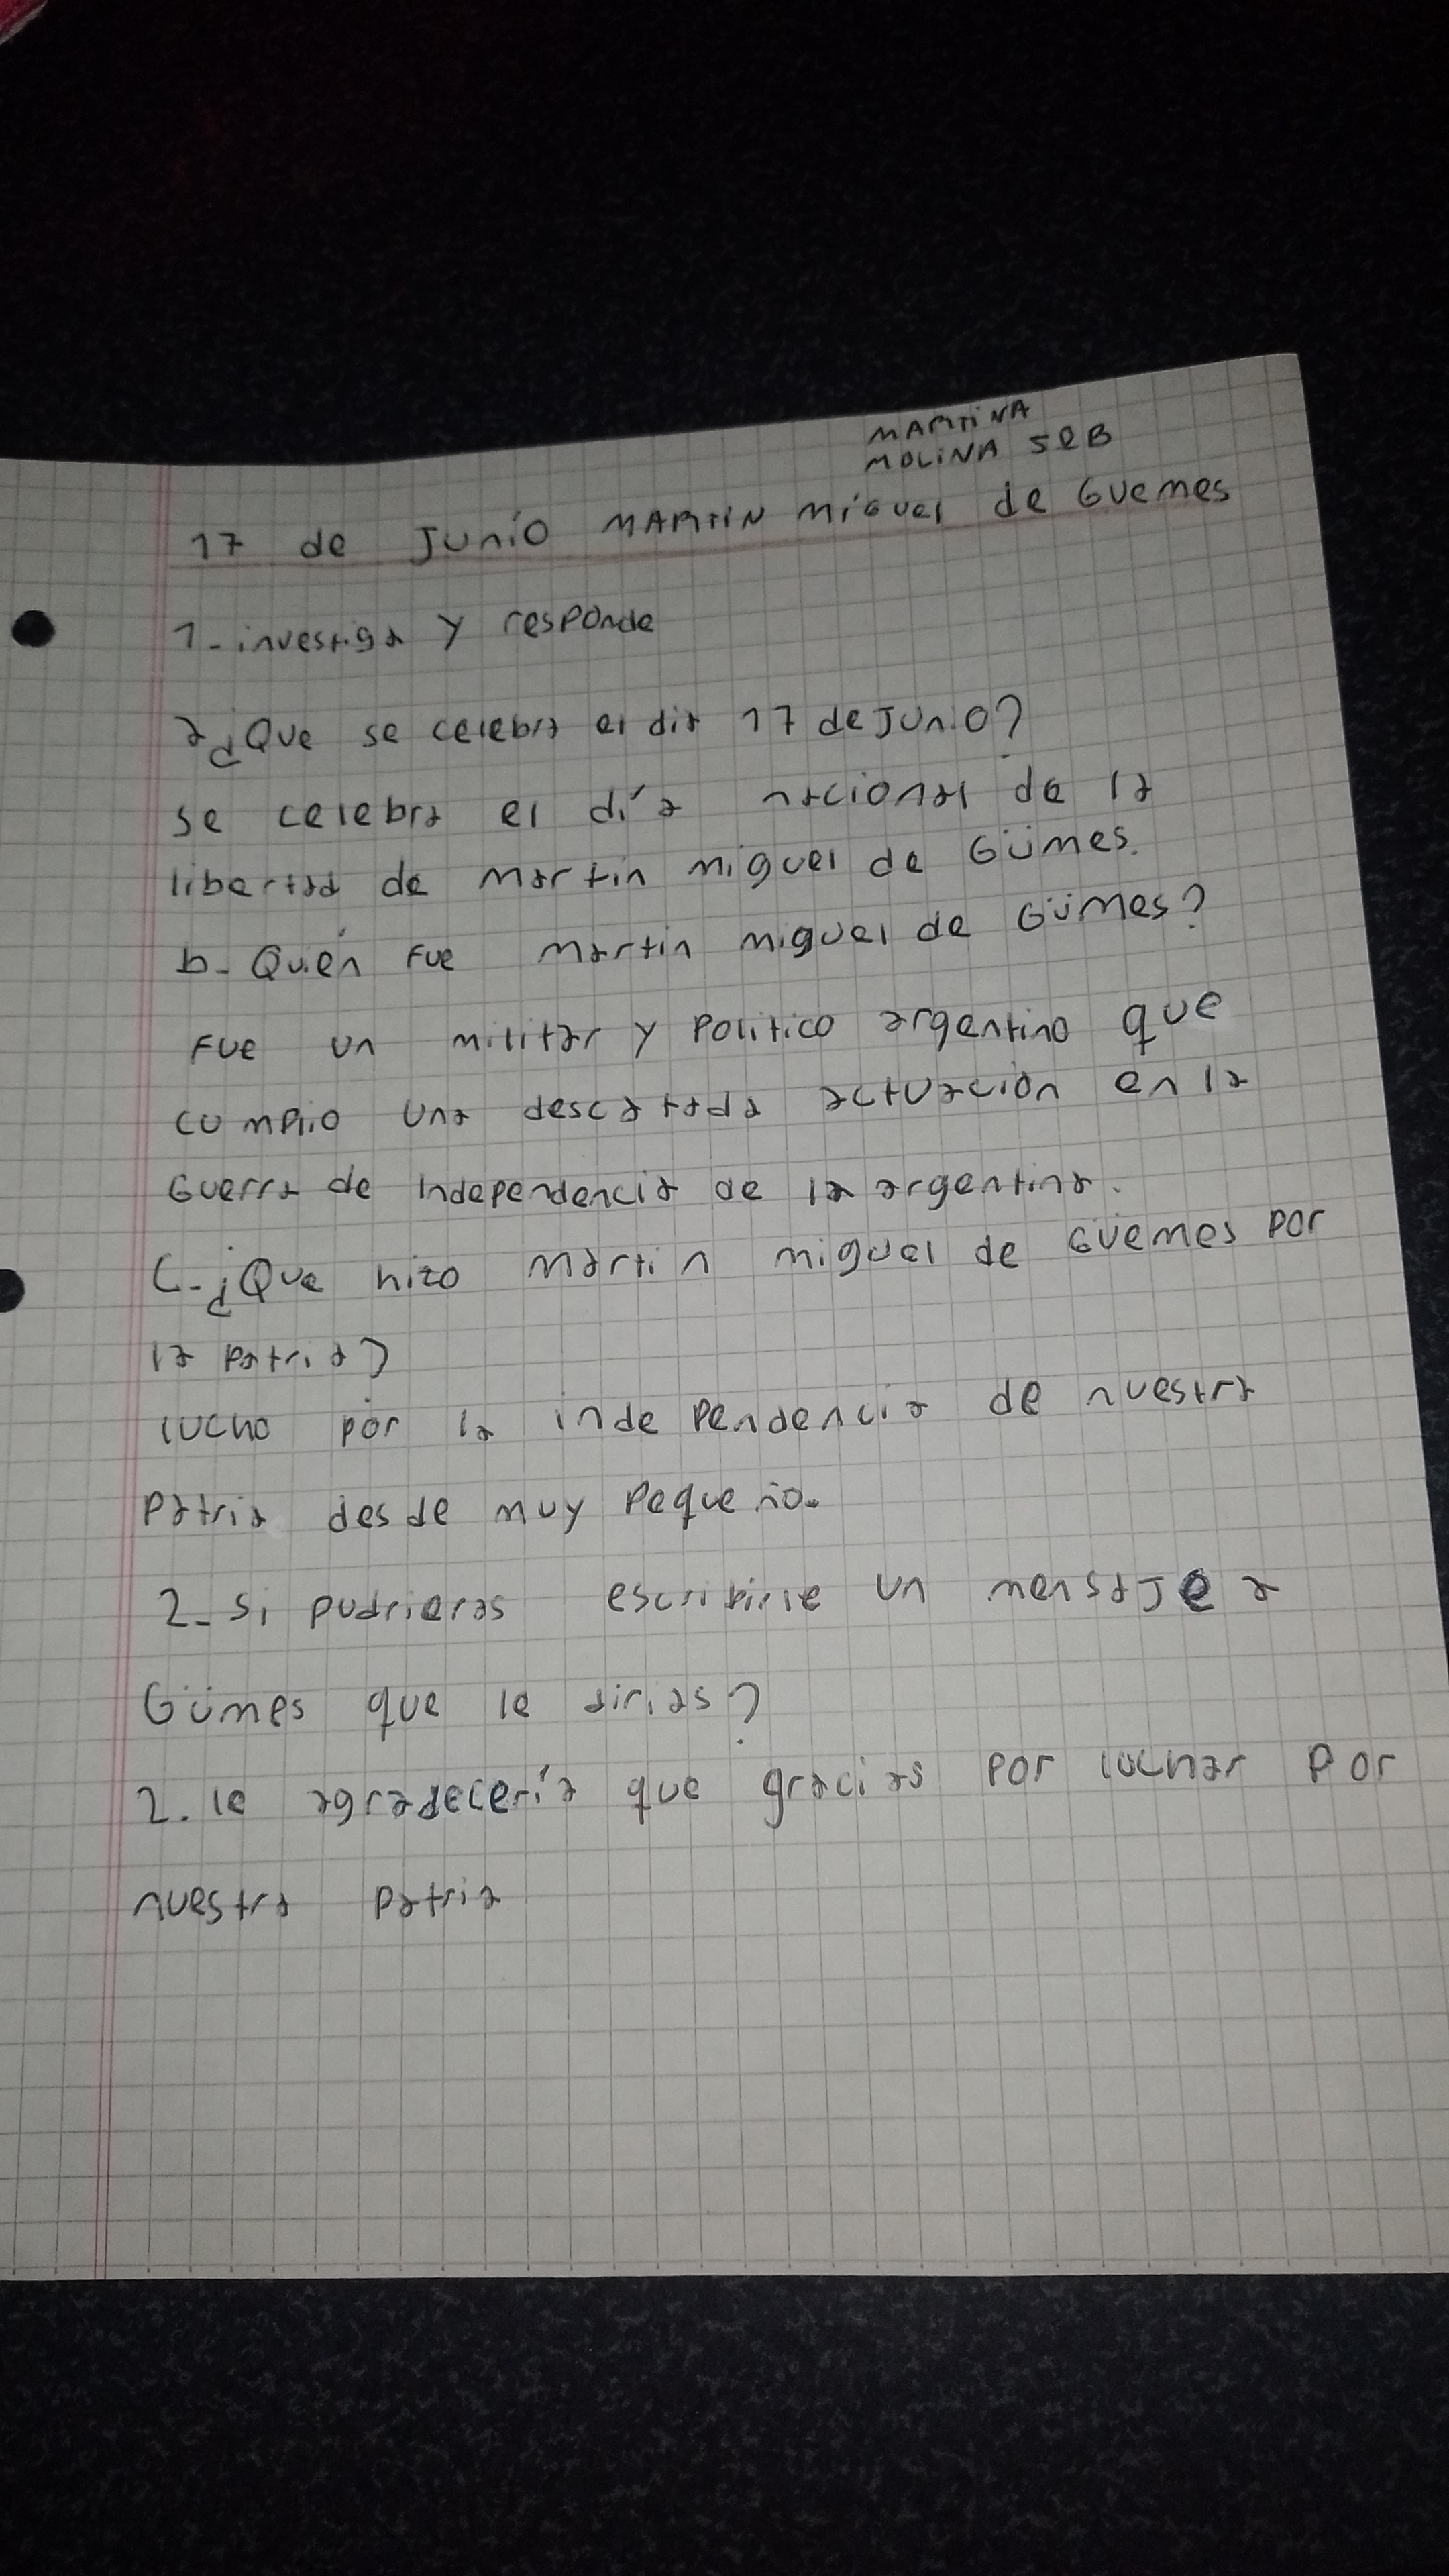 MARTINA
MOLINA 5èB
17 de Junio MARTIN Miguel de Guemes
1- investiga y responde
a¿Que se celebra el dia 17 de Junio?
se celebra el día nacional de la
libertad de Martin miguel de Gümes.
b- Quién fue martin miguel de Gümes?
Fue un militar y Politico argentino que
cumplio una descatada actuacion en la
Guerra de Independencia de la argentina.
C-¿Que hizo Martin miguel de Güemes por
la patria?
lucho por la independencia de nuestra
Patria desde muy Pequeño.
2- Si pudrieras escribirle un mensaje a
Gümes que le dirias?
2. le agradecería que gracias por luchar por
nuestra Patria